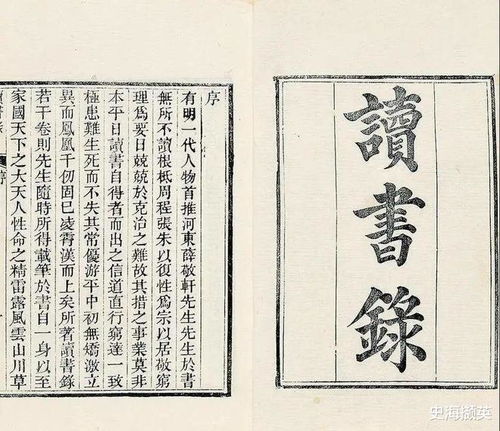 讀書錄
序
有明一代人物首推河東薛敬軒先生先生於書
無所不讀根柢周程張朱以復性爲宗以居敬窮
理爲要日兢兢於克治之難故其措之事業莫非
本平日讀書自得者而出之信道直行窮達一致
極患難生死而不失其常優游平中初無矯激立
異而鳳凰千仞固已凌霄漢而上矣所著讀書錄
若干卷則先生隨時所得載筆於書自一身以至
家國天下之大天人性命之精雷露風雲山川草
序
史海撷英